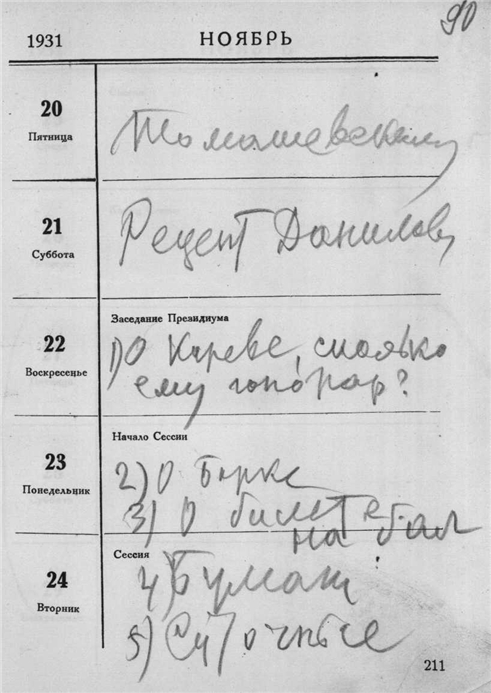 90
1931 НОЯБРЬ
20
Пятница
Томашевскому
21
Суббота
Рецепт Данилову
Заседание Президиума
22
Воскресенье
1) О Кареве, сколько
ему гонорар?
Начало Сессии
23
Понедельник
2) О Барке
3) О билете
на бал
Сессия
24
Вторник
4) Бумаги
5) Суточные
211